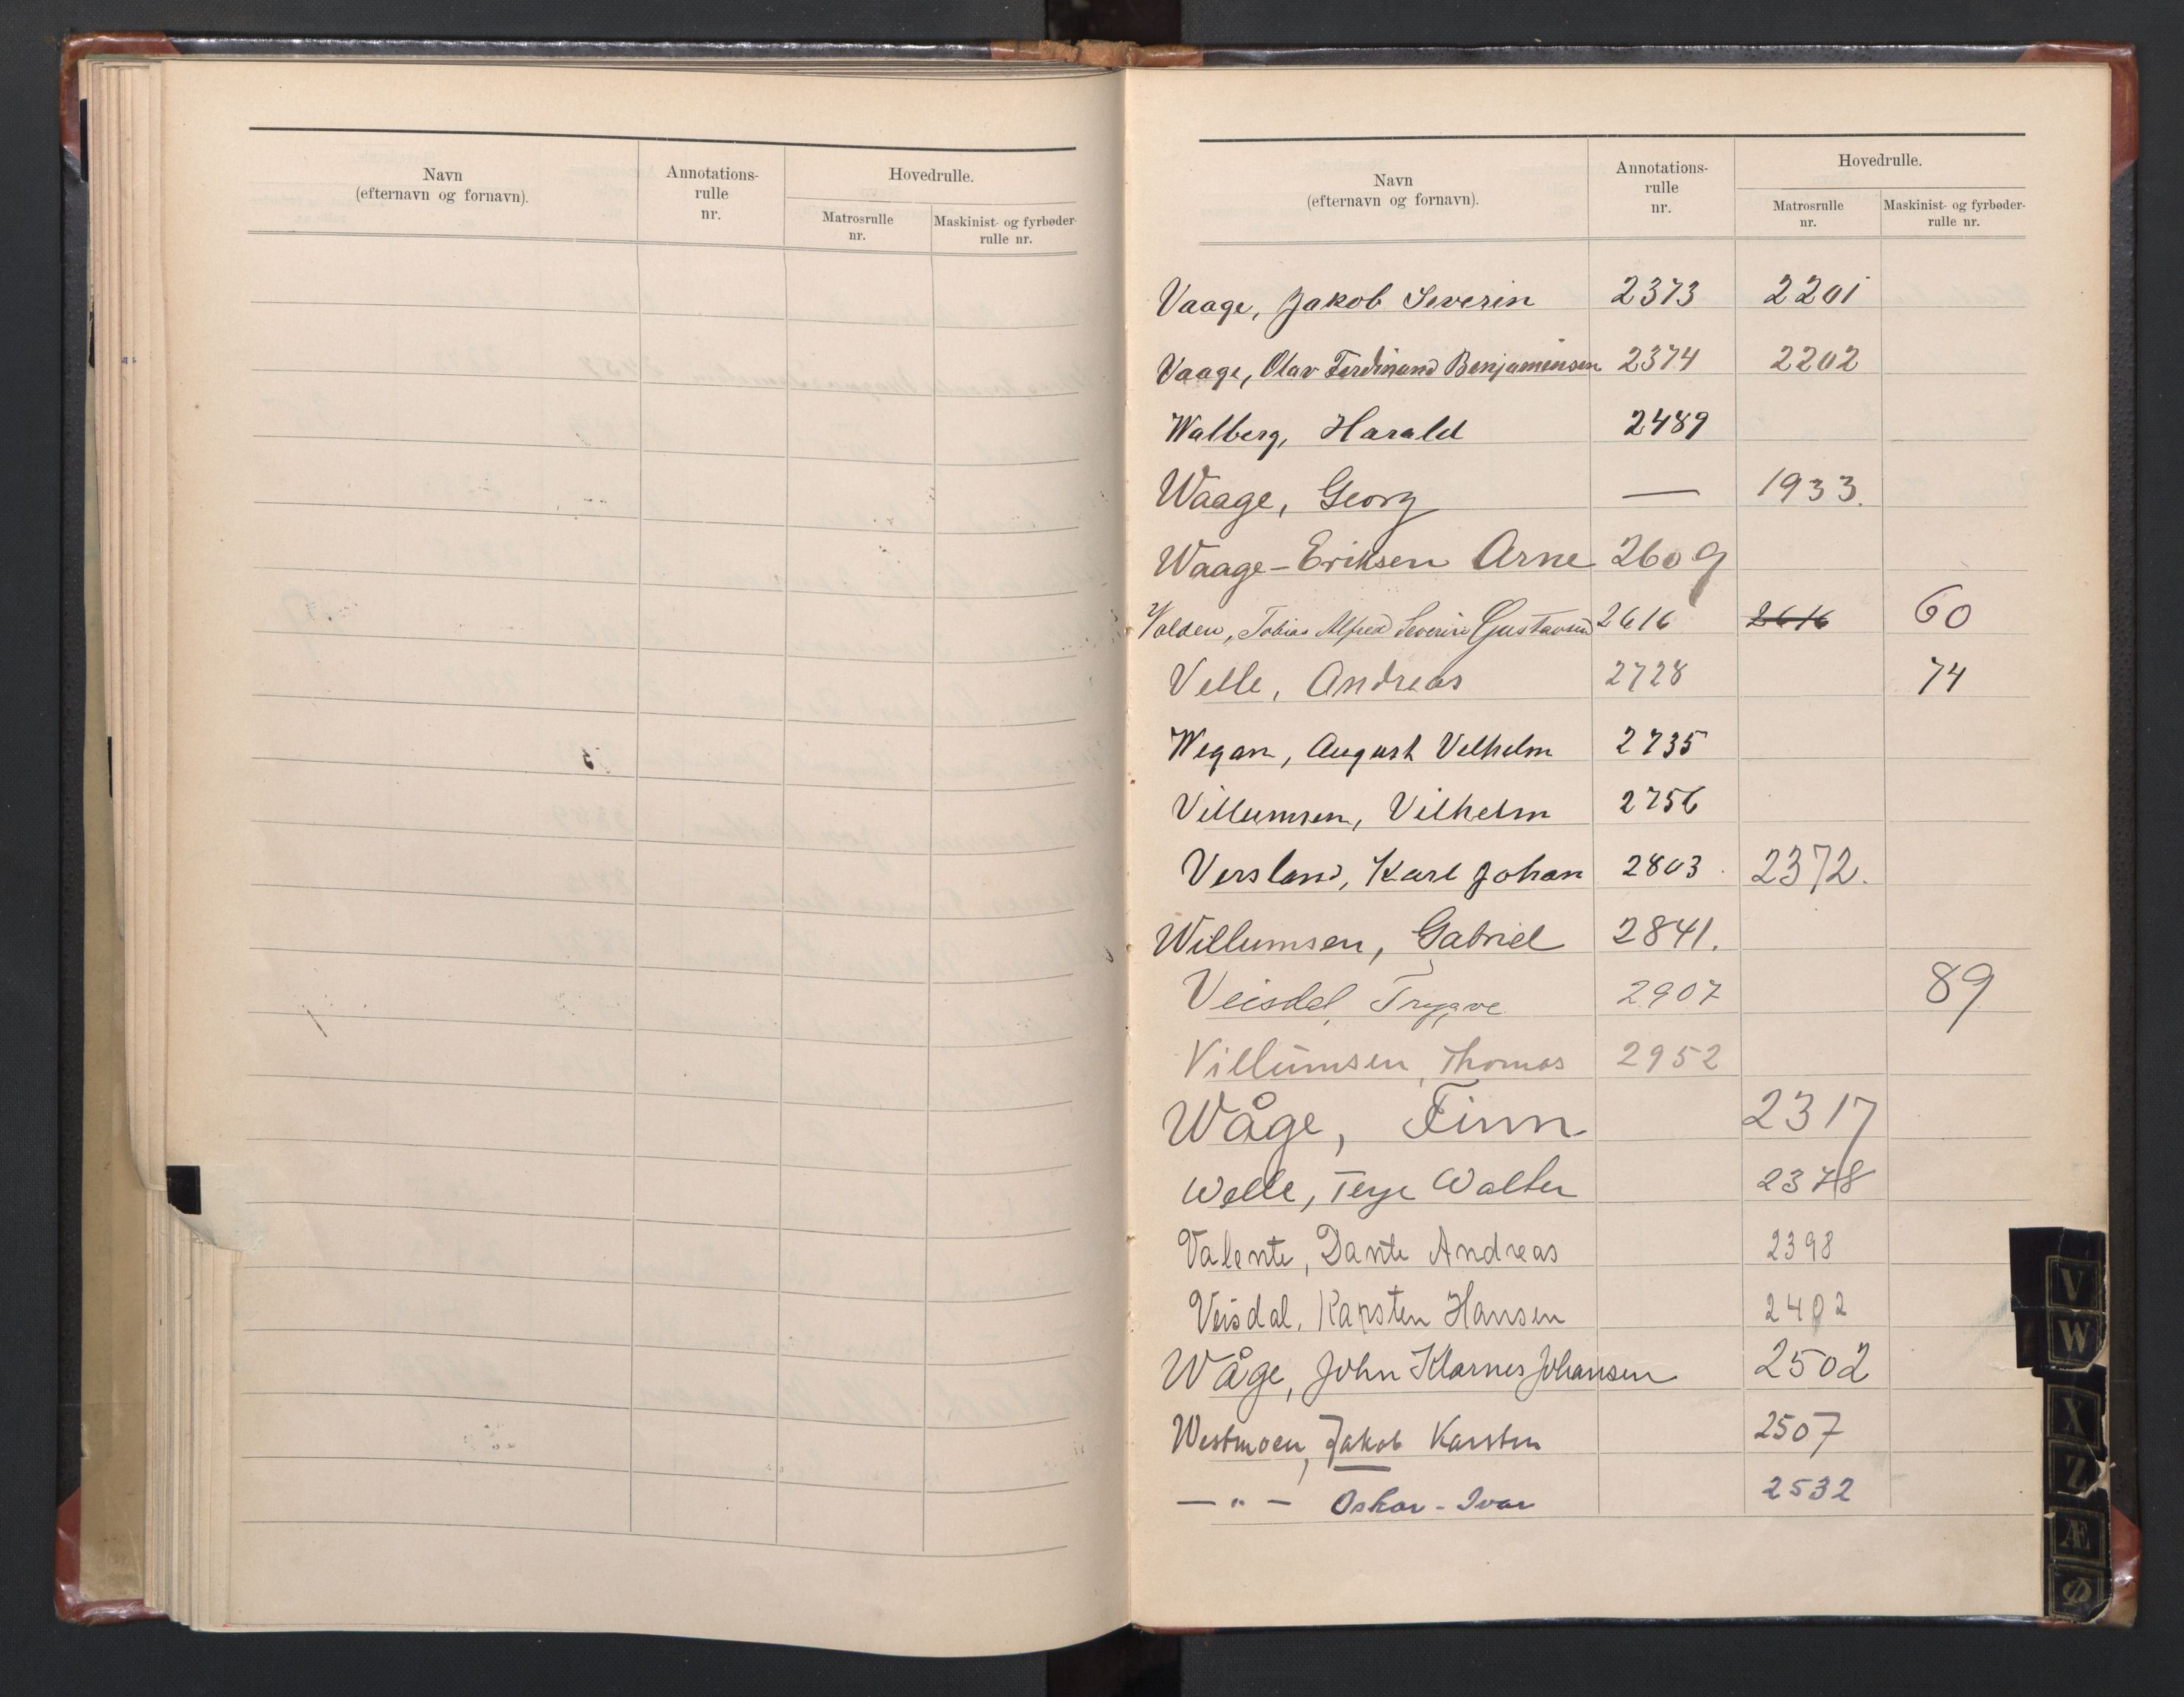 Navn
(efternavn og fornavn).
Annotations-
rulle
nr.
Hovedrulle.
Matrosrulle
nr.
Maskinist- og fyrbøder-
rulle nr.
Navn
(efternavn og fornavn).
Annotations-
rulle
nr.
Hovedrulle.
Matrosrulle
nr.
Maskinist- og fyrbøder-
rulle nr.
Vaage, Jakob Severin 2373 2201
Vaage, Olav Ferdinand Benjaminsen 2374 2202
Walberg, Harald 2489
Waage, Georg — 1933.
Waage-Eriksen Arne 2609
Valden, Tobias Alfred Severin Gustavsen 2616 2616 60
Velle, Andreas 2728 74
Wegan, August Velhelm 2735
Villumsen, Vilhelm 2756
Versland, Karl Johan 2803 2372.
Willumsen, Gabriel 2841.
Veisdal, Trygve 2907 89
Villumsen, Thomas 2952
Wåge, Finn 2317
Welle, Terje Walter 2378
Valente, Dante Andreas 2398
Veisdal, Karsten Hansen 2402
Wåge, John Klarnes Johansen 2502
Westmoen, Jakob Karsten 2507
— " — Oskar - Ivar 2532
V
W
X
Z
Æ
Ø